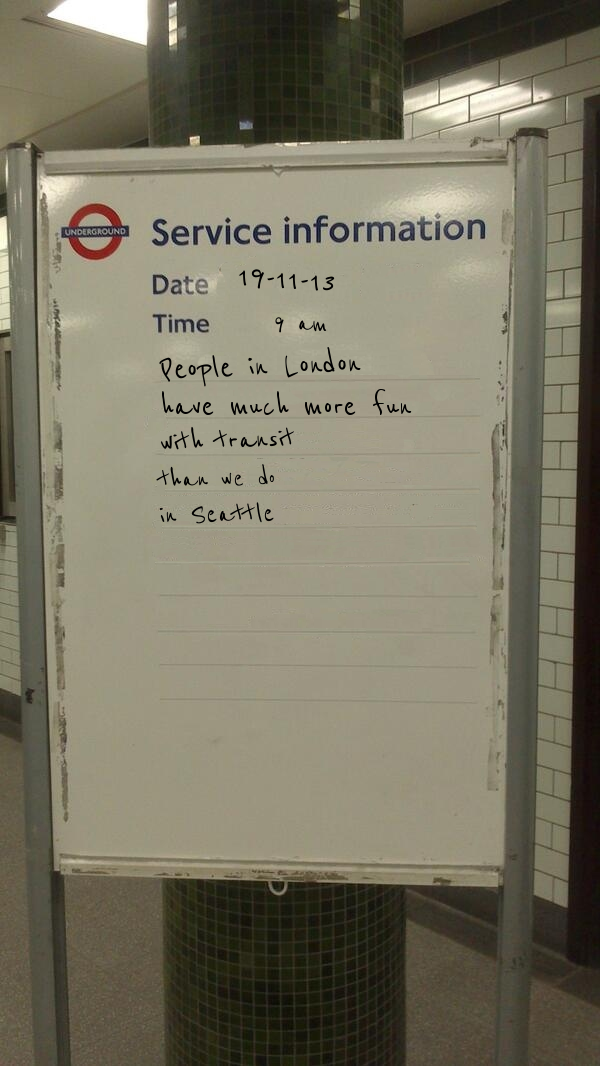 UNDERGROUND
Service information
Date 19-11-13
Time 9 am
People in London
have much more fun
with transit
than we do
in Seattle